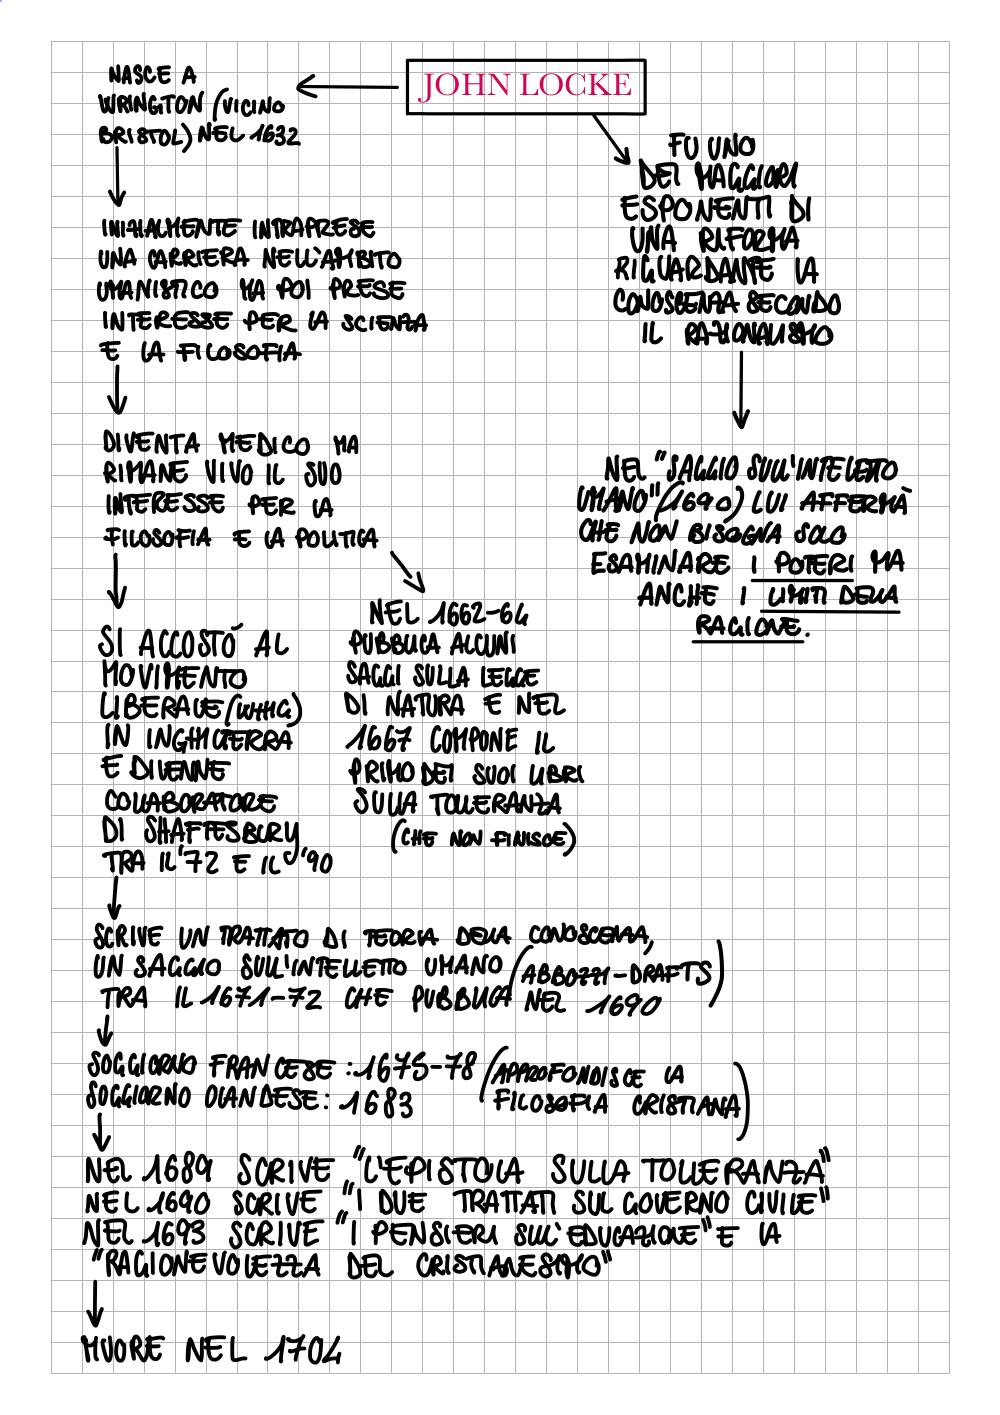 JOHN LOCKE
NASCE A
WRINGTON (VICINO
BRISTOL) NEL 1632
INIZIALMENTE INTRAPRESE
UNA CARRIERA NELL'AMBITO
UMANISTICO MA POI PRESE
INTERESSE PER LA SCIENZA
E LA FILOSOFIA
DIVENTA MEDICO MA
RIMANE VIVO IL SUO
INTERESSE PER LA
FILOSOFIA E LA POLITICA
SI ACCOSTÒ AL
MOVIMENTO
LIBERALE (WHIG)
IN INGHILTERRA
E DIVENNE
COLLABORATORE
DI SHAFTESBURY
TRA IL '72 E IL '90
NEL 1662-64
PUBBLICA ALCUNI
SAGGI SULLA LEGGE
DI NATURA E NEL
1667 COMPONE IL
PRIMO DEI SUOI LIBRI
SULLA TOLLERANZA
(CHE NON FINISCE)
SCRIVE UN TRATTATO DI TEORIA DELLA CONOSCENZA,
UN SAGGIO SULL'INTELLETTO UMANO (ABBOZZI-DRAFTS)
TRA IL 1671-72 CHE PUBBLICA NEL 1690
SOGGIORNO FRANCESE: 1675-78 (APPROFONDISCE LA
SOGGIORNO OLANDESE: 1683 FILOSOFIA CRISTIANA)
NEL 1689 SCRIVE "L'EPISTOLA SULLA TOLLERANZA"
NEL 1690 SCRIVE "I DUE TRATTATI SUL GOVERNO CIVILE"
NEL 1693 SCRIVE "I PENSIERI SULL'EDUCAZIONE" E LA
"RAGIONEVOLEZZA DEL CRISTIANESIMO"
MUORE NEL 1704
FU UNO
DEI MAGGIORI
ESPONENTI DI
UNA RIFORMA
RIGUARDANTE LA
CONOSCENZA SECONDO
IL RAZIONALISMO
NEL "SAGGIO SULL'INTELLETTO
UMANO" (1690) LUI AFFERMÀ
CHE NON BISOGNA SOLO
ESAMINARE I POTERI MA
ANCHE I LIMITI DELLA
RAGIONE.